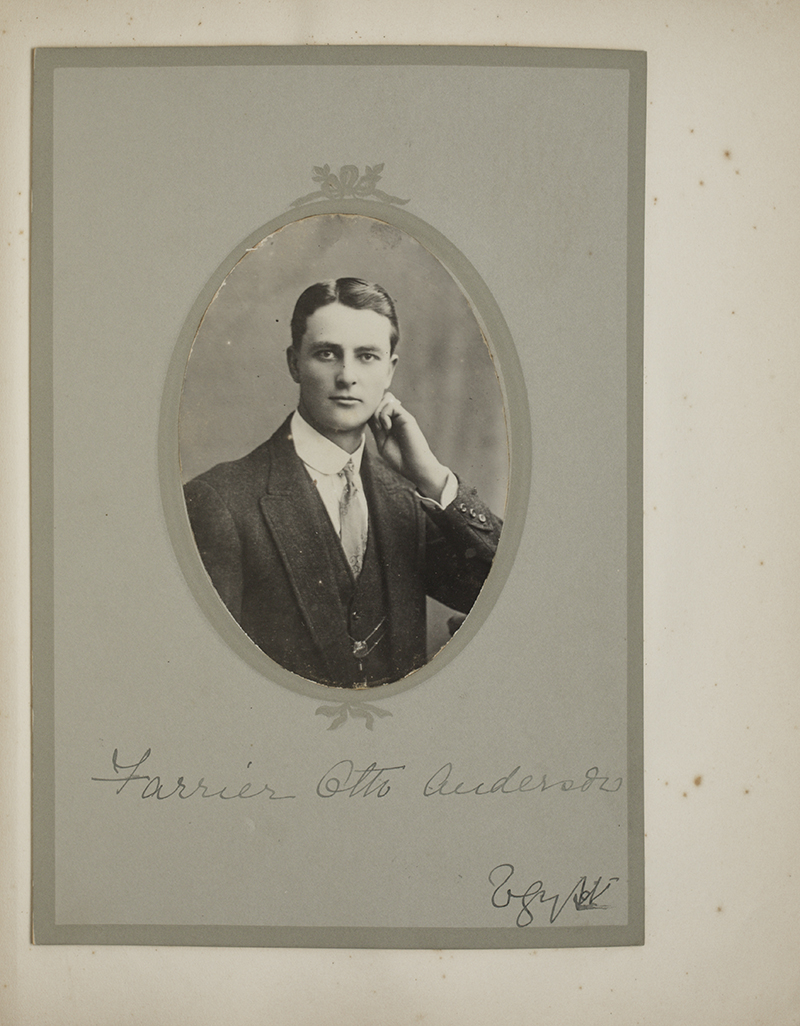 Farrier Otto Anderson
Egypt